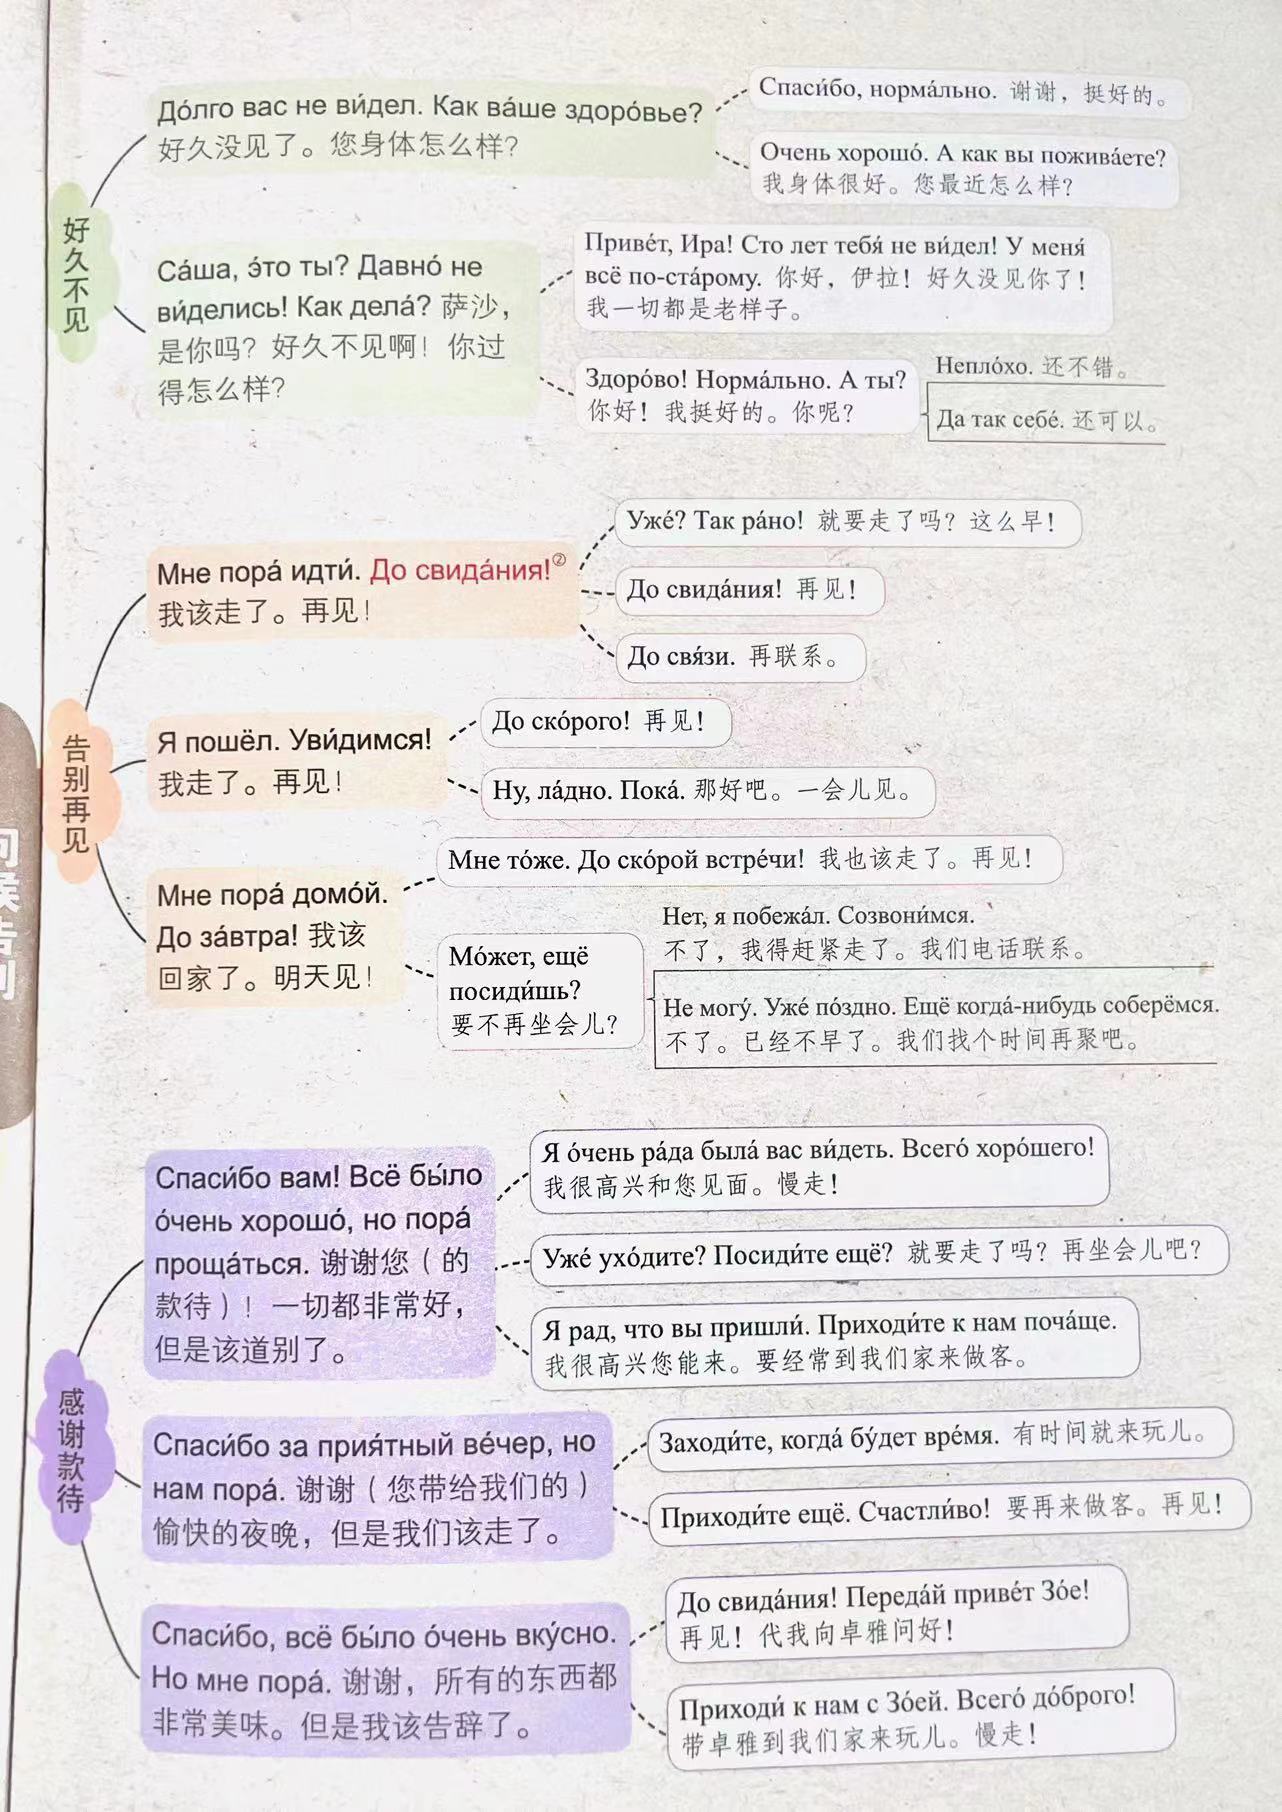 好久不见
До́лго вас не ви́дел. Как ва́ше здоро́вье?
好久没见了。您身体怎么样?
Спаси́бо, норма́льно. 谢谢，挺好的。
Очень хорошо́. А как вы пожива́ете?
我身体很好。您最近怎么样?
Са́ша, э́то ты? Давно́ не
ви́делись! Как дела́? 萨沙，
是你吗? 好久不见啊! 你过
得怎么样?
Приве́т, Ира! Сто лет тебя́ не ви́дел! У меня́
всё по-ста́рому. 你好，伊拉! 好久没见你了!
我一切都是老样子。
Здоро́во! Норма́льно. А ты?
你好! 我挺好的。你呢?
Непло́хо. 还不错。
Да так себе́. 还可以。
告别再见
Мне пора́ идти́. До свида́ния!②
我该走了。再见!
Уже́? Так ра́но! 就要走了吗? 这么早!
До свида́ния! 再见!
До свя́зи. 再联系。
Я пошёл. Уви́димся!
我走了。再见!
До ско́рого! 再见!
Ну, ла́дно. Пока́. 那好吧。一会儿见。
Мне пора́ домо́й.
До за́втра! 我该
回家了。明天见!
Мне то́же. До ско́рой встре́чи! 我也该走了。再见!
Мо́жет, ещё
посиди́шь?
要不再坐会儿?
Нет, я побежа́л. Созвони́мся.
不了，我得赶紧走了。我们电话联系。
Не могу́. Уже́ по́здно. Ещё когда́-нибудь соберёмся.
不了。已经不早了。我们找个时间再聚吧。
感谢款待
Спаси́бо вам! Всё бы́ло
о́чень хорошо́, но пора́
проща́ться. 谢谢您（的
款待）! 一切都非常好，
但是该道别了。
Я о́чень ра́да была́ вас ви́деть. Всего́ хоро́шего!
我很高兴和您见面。慢走!
Уже́ ухо́дите? Посиди́те ещё? 就要走了吗? 再坐会儿吧?
Я рад, что вы пришли́. Приходи́те к нам поча́ще.
我很高兴您能来。要经常到我们家来做客。
Спаси́бо за прия́тный ве́чер, но
нам пора́. 谢谢（您带给我们的）
愉快的夜晚，但是我们该走了。
Заходи́те, когда́ бу́дет вре́мя. 有时间就来玩儿。
Приходи́те ещё. Счастли́во! 要再来做客。再见!
Спаси́бо, всё бы́ло о́чень вку́сно.
Но мне пора́. 谢谢，所有的东西都
非常美味。但是我该告辞了。
До свида́ния! Переда́й приве́т Зо́е!
再见! 代我向卓雅问好!
Приходи́ к нам с Зо́ей. Всего́ до́брого!
带卓雅到我们家来玩儿。慢走!